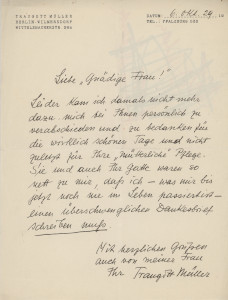 TRAUGOTT MÜLLER
BERLIN-WILMERSDORF
DATUM: 6. Okt. 29.
TEL.: PFALZBURG
Liebe „Gnädige Frau"!
Leider kam ich damals nicht mehr
dazu mich bei Ihnen persönlich zu
verabschieden und zu bedanken für
die wirklich schönen Tage und nicht
zuletzt für Ihre „Mütterliche" Pflege.
Sie und auch Ihr Gatte waren so
nett zu mir, daß ich – was mir bis
jetzt noch nie im Leben passiert ist –
einen überschwenglichen Dankesbrief
schreiben muß.
Mit herzlichen Grüßen
auch von meiner Frau
Ihr Traugott Müller